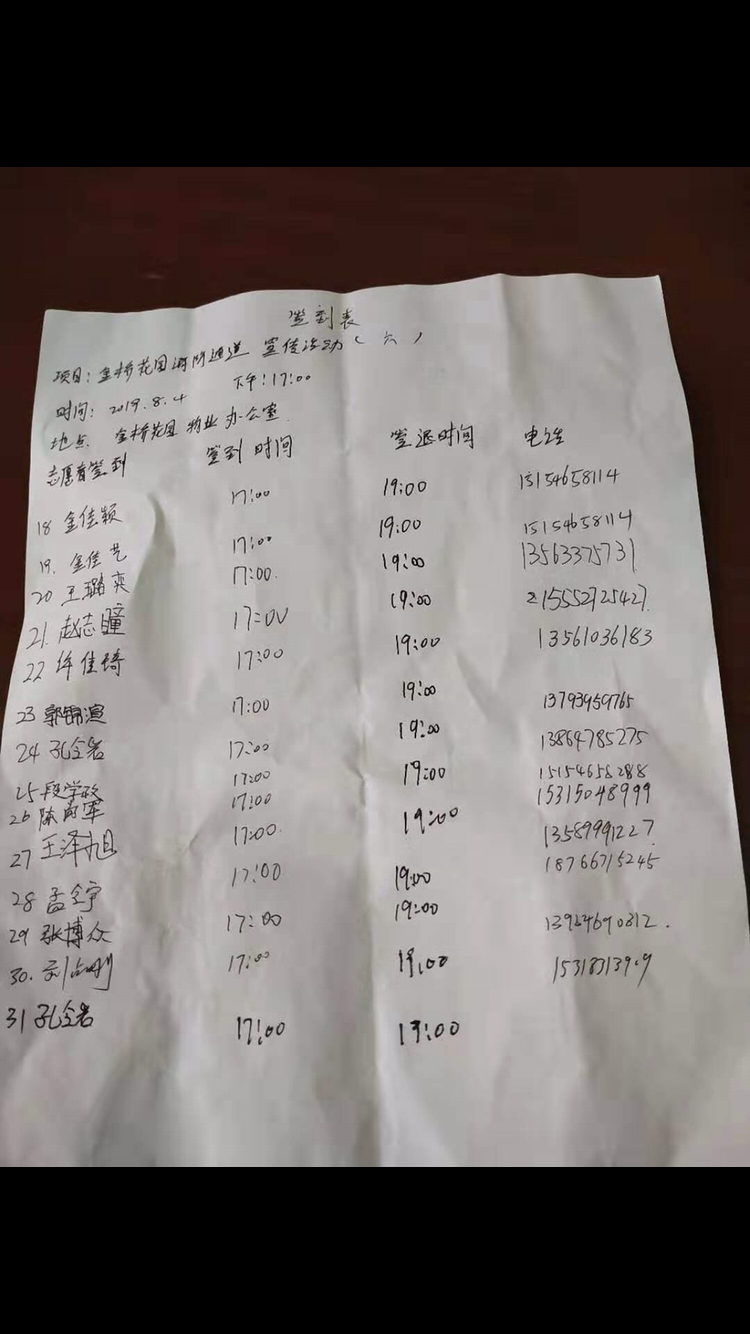 签到表
项目:金桥花园消防通道 宣传活动(六)
时间:2019.8.4 下午:17:00
地点 金桥花园 物业办公室
志愿者签到 签到时间 签退时间 电话
18 金佳颖 17:00 19:00 15154658114
19. 金佳艺 17:00 19:00 15154658114
20 王璐奕 17:00. 19:00 13563375731
21. 赵志瞳 17:00 19:00 15552725427.
22 许佳琦 17:00 19:00 13561036183
23 郭锦渲 17:00 19:00 13793959765
24 孔令岩 17:00 19:00 13864785275
25 段学政 17:00 19:00 15154658288
26 陈雨军 17:00 15315048999
27 王泽旭 17:00. 19:00 13589991227
28 孟令宇 17:00 19:00 18766715245
29 张博众 17:00 19:00 13924690812.
30. 刘 17:00 19:00
31 孔令岩 17:00 19:00